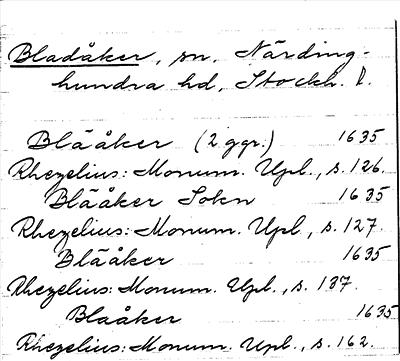 Bladåker, sn, Närding-
hundra hd, Stockh. l.
Blååker (2 ggr.) 1635
Rhezelius: Monum. Upl., s. 126.
Blååker Sokn 1635
Rhezelius: Monum. Upl., s. 127.
Blååker 1635
Rhezelius: Monum. Upl., s. 137.
Blaåker 1635
Rhezelius: Monum. Upl., s. 162.